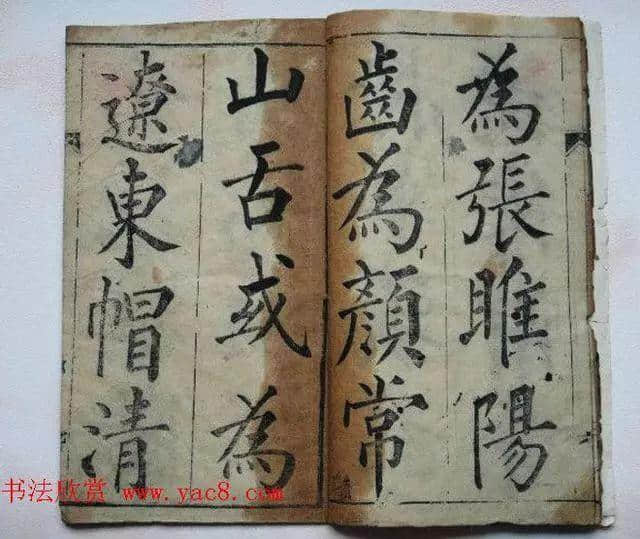 為張睢陽
齒為顏常
山舌或為
遼東帽清
书法欣赏 www.yac8.com